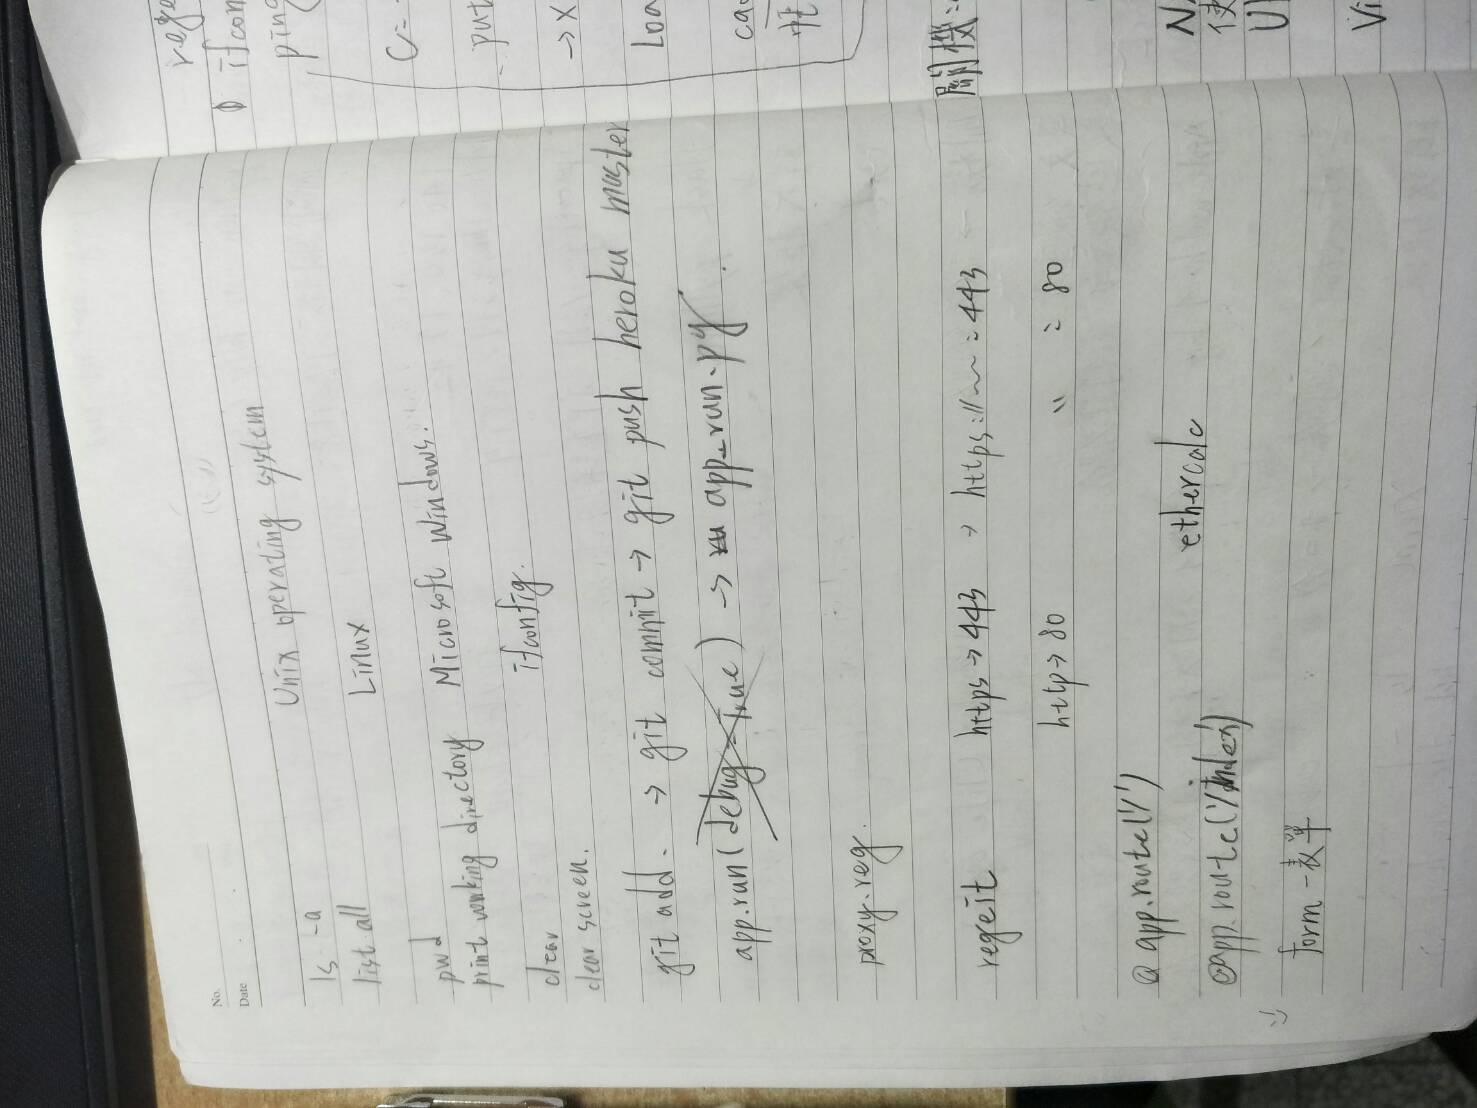 No.
Date
Unix operating system
ls -a
list all
Linux
pwd
print working directory Microsoft Windows.
clear
ifconfig.
clear screen.
git add . → git commit → git push heroku master
app.run(debug=True) → app_run.py
proxy.reg.
regeit https → 443 → https://~~ = 443
http → 80 " = 80
@app.route('/')
@app.route('/index') ethercalc
form - 表單
ifcon
ping
put
→ x
Loa
關機
使
Vi